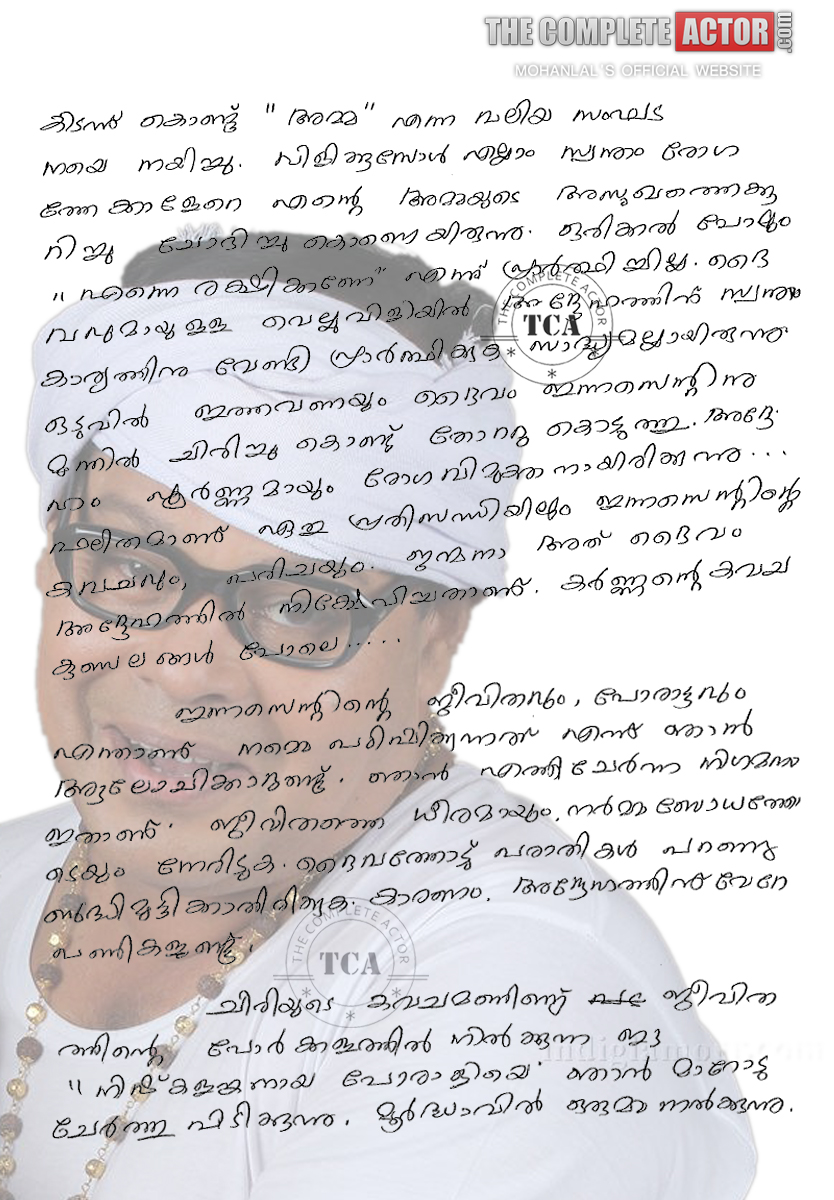 THE COMPLETE ACTOR .com
MOHANLAL`S OFFICIAL WEBSITE
കിടന്ന് കൊണ്ട് "അമ്മ" എന്ന വലിയ സംഘട
നയെ നയിച്ചു. വിളിക്കുമ്പോൾ എല്ലാം സ്വന്തം രോഗ
ത്തേക്കാളേറെ എന്റെ അമ്മയുടെ അസുഖത്തെക്കു
റിച്ചു ചോദിച്ചു കൊണ്ടേയിരുന്നു. ഒരിക്കൽ പോലും
"എന്നെ രക്ഷിക്കണേ" എന്ന് പ്രാർത്ഥിച്ചില്ല. ദൈ
വവുമായുള്ള വെല്ലുവിളിയിൽ അദ്ദേഹത്തിന് സ്വന്തം
കാര്യത്തിനു വേണ്ടി പ്രാർത്ഥിക്കുക സാദ്ധ്യമല്ലായിരുന്നു
ഒടുവിൽ ഇത്തവണയും ദൈവം ഇന്നസെന്റിനു
മുന്നിൽ ചിരിച്ചു കൊണ്ട് തോറ്റു കൊടുത്തു. അദ്ദേ
ഹം പൂർണ്ണമായും രോഗവിമുക്തനായിരിക്കുന്നു...
ഫലിതമാണ് ഏതു പ്രതിസന്ധിയിലും ഇന്നസെന്റിന്റെ
കവചവും, പരിചയും. ജന്മനാ അത് ദൈവം
അദ്ദേഹത്തിൽ നിക്ഷേപിച്ചതാണ്. കർണ്ണന്റെ കവച
കുണ്ഡലങ്ങൾ പോലെ.....
ഇന്നസെന്റിന്റെ ജീവിതവും, പോരാട്ടവും
എന്താണ് നമ്മെ പഠിപ്പിക്കുന്നത് എന്ന് ഞാൻ
ആലോചിക്കാറുണ്ട്. ഞാൻ എത്തിച്ചേർന്ന നിഗമനം
ഇതാണ്. ജീവിതത്തെ ധീരമായും, നർമ്മബോധത്തോ
ടെയും നേരിടുക. ദൈവത്തോട് പരാതികൾ പറഞ്ഞു
ബുദ്ധിമുട്ടിക്കാതിരിക്കുക. കാരണം, അദ്ദേഹത്തിന് വേറേ
പണികളുണ്ട്.
ചിരിയുടെ കവചമണിഞ്ഞ് ജീവിത
ത്തിന്റെ പോർക്കളത്തിൽ നിൽക്കുന്ന ഈ
"നിഷ്കളങ്കനായ പോരാളിയെ" ഞാൻ മാറോടു
ചേർത്തു പിടിക്കുന്നു. മൂർദ്ധാവിൽ ഉമ്മ നൽകുന്നു.
THE COMPLETE ACTOR
TCA
THE COMPLETE ACTOR
TCA